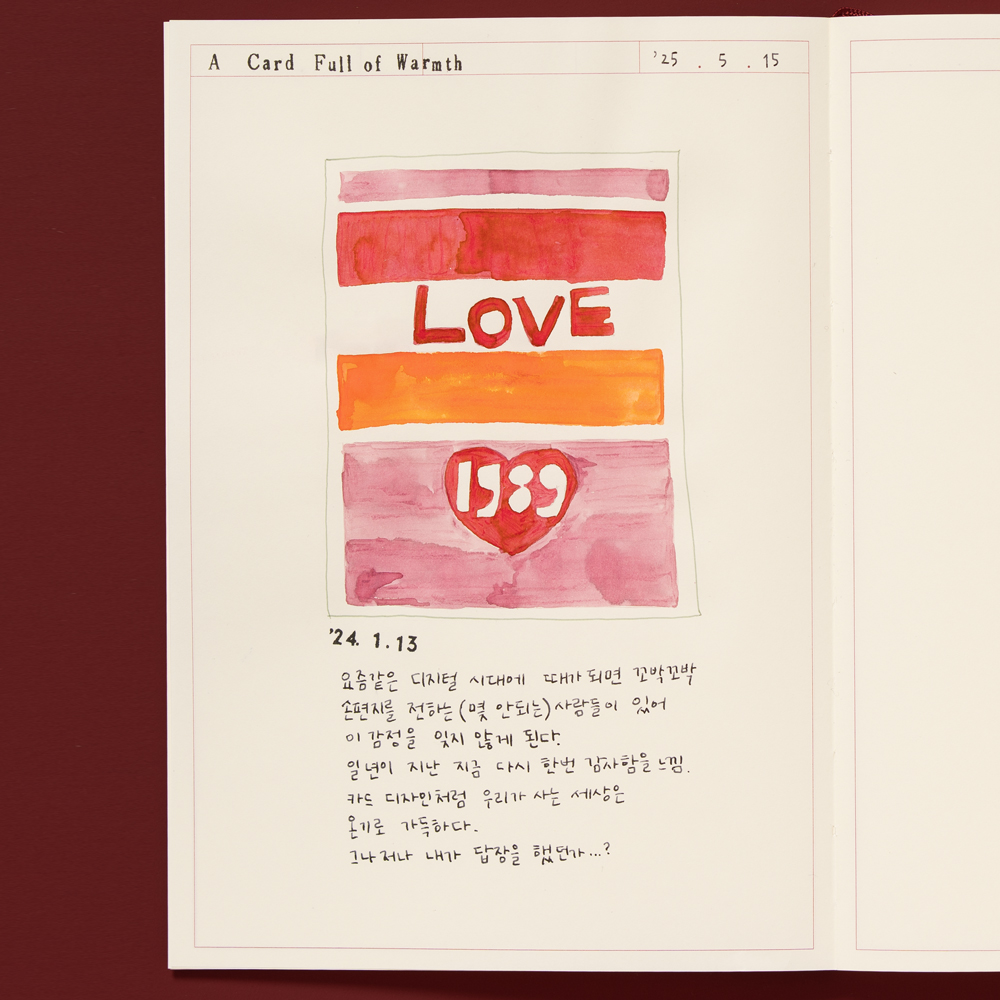 A Card Full of Warmth
'25 . 5 . 15
LOVE
1989
'24. 1.13
요즘같은 디지털 시대에 때가 되면 꼬박꼬박
손편지를 전하는 (몇 안되는) 사람들이 있어
이 감정을 잊지 않게 된다.
일년이 지난 지금 다시 한번 감사함을 느낌.
카드 디자인처럼 우리가 사는 세상은
온기로 가득하다.
그나저나 내가 답장을 했던가...?